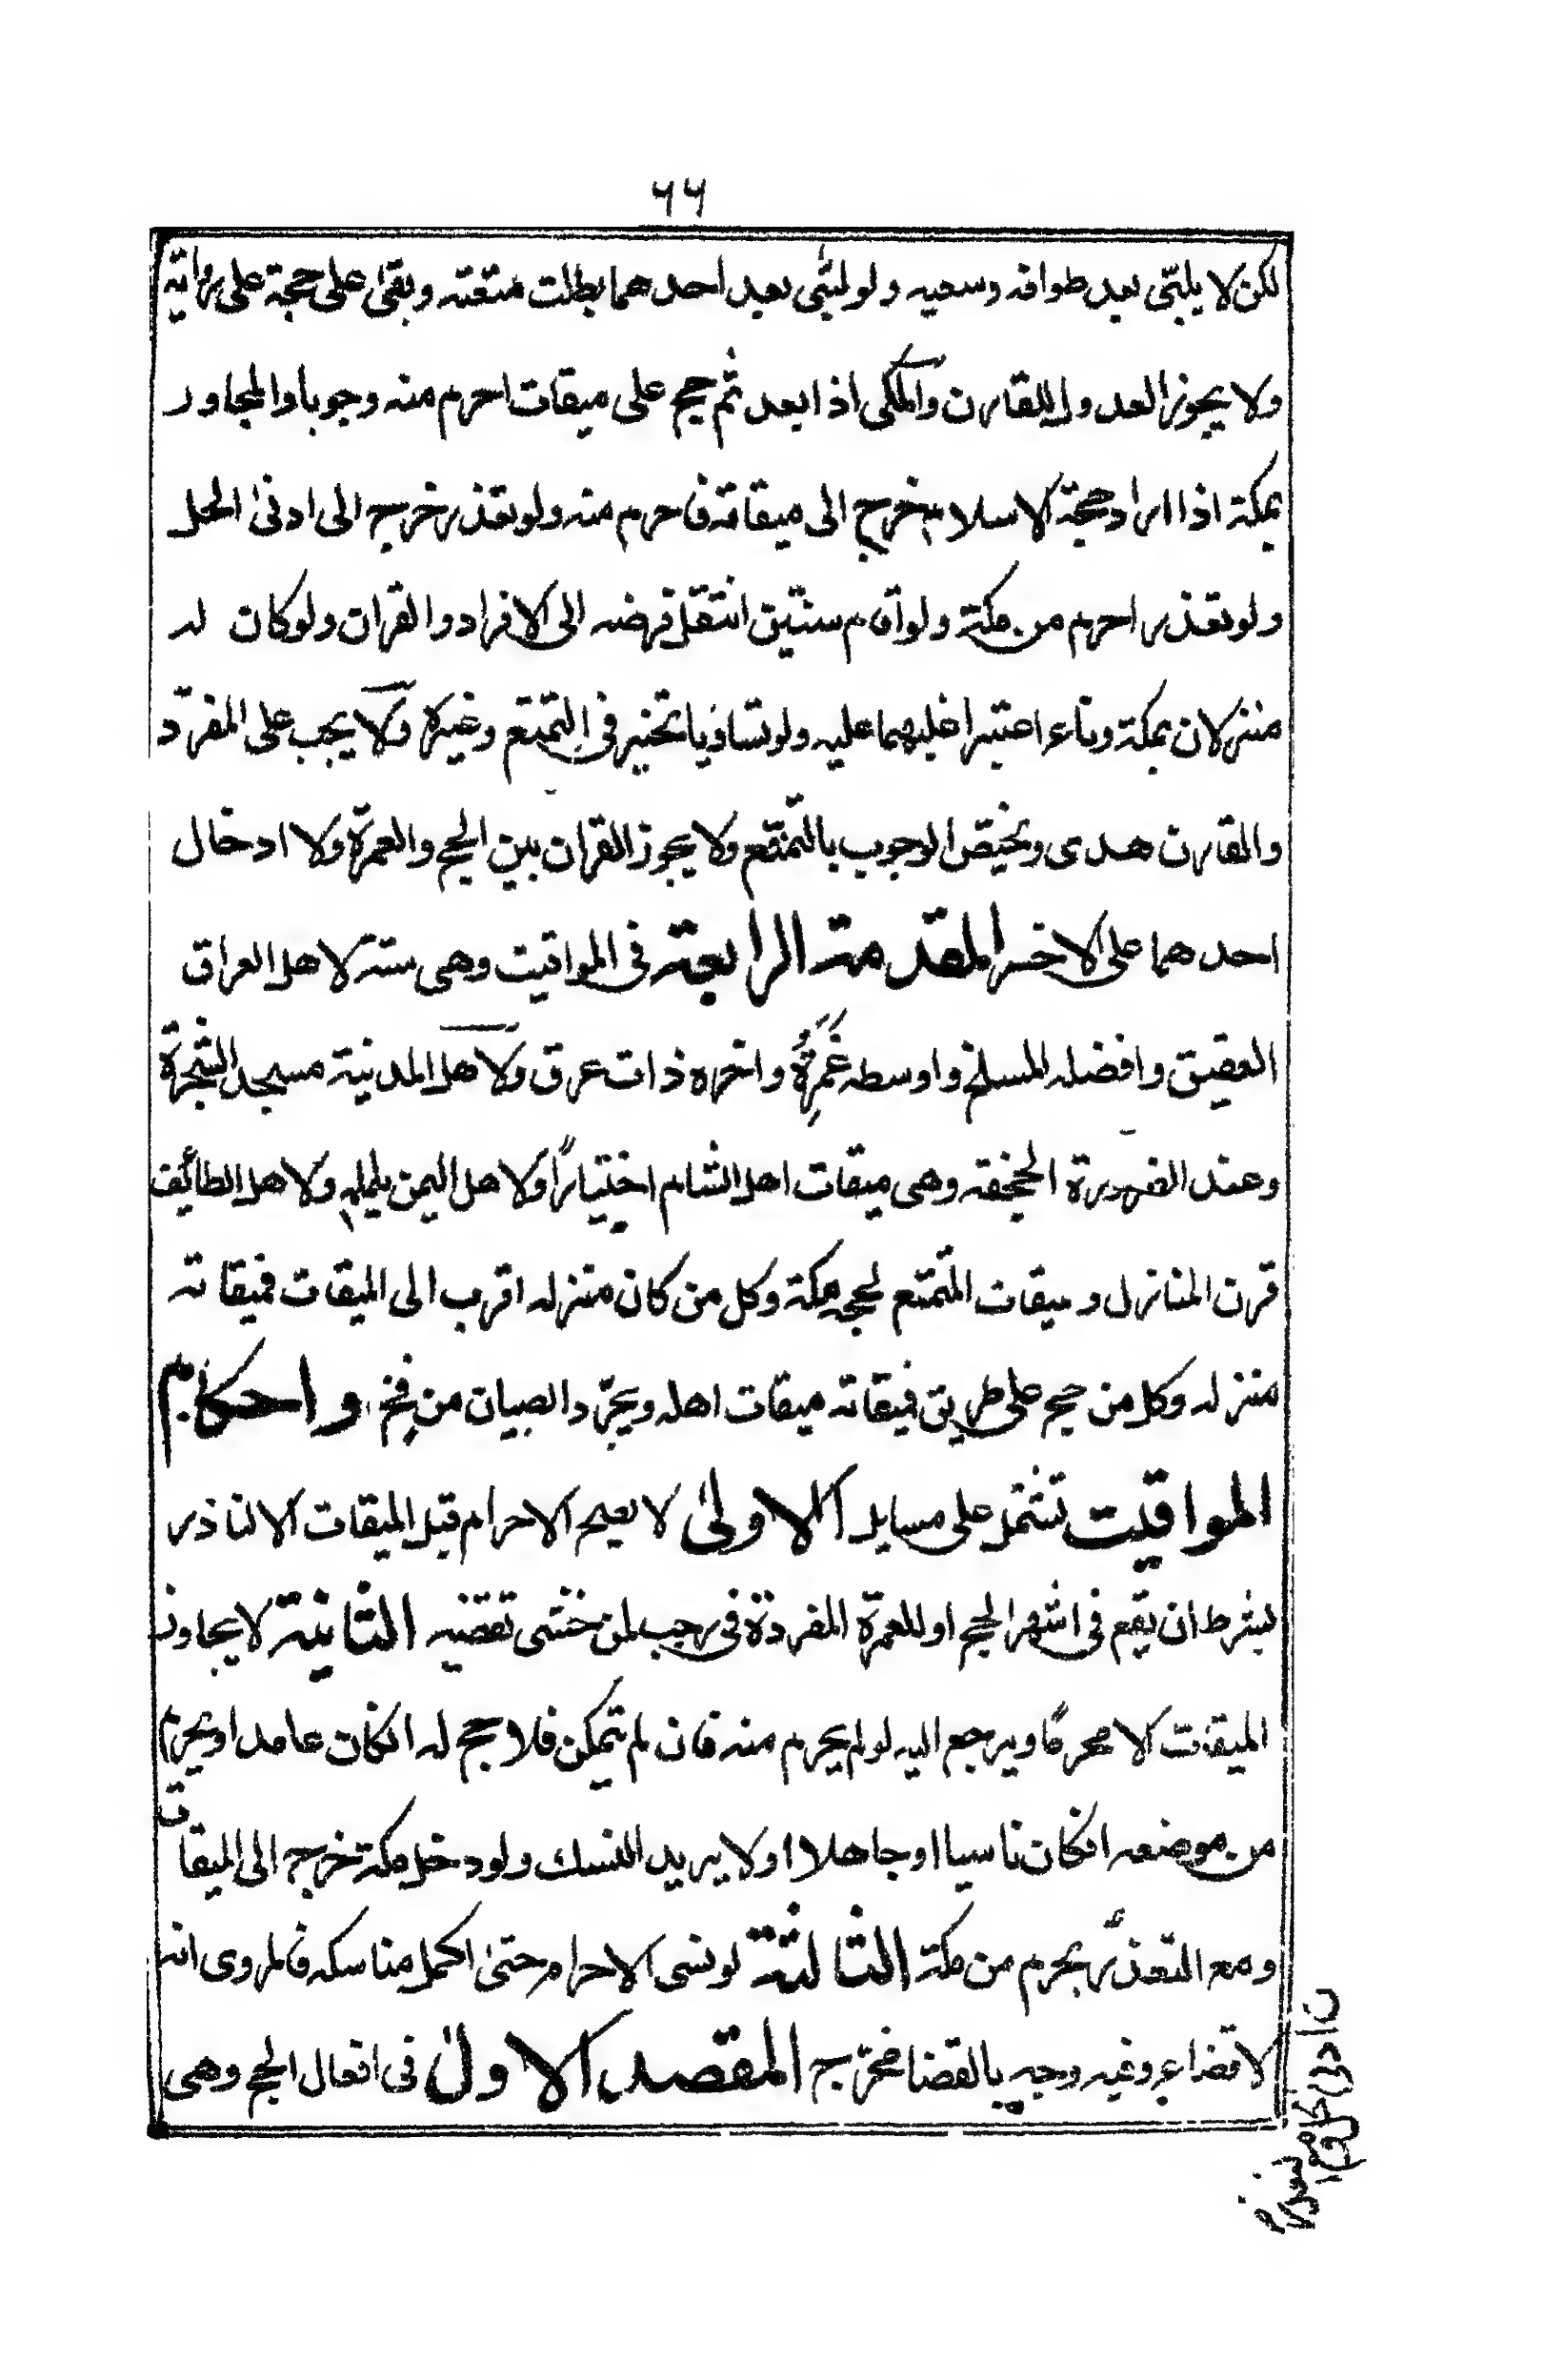 ٦٦
لكن لا يلبّي بعد طوافه وسعيه ولو لبّى بعد احدهما بطلت متعته وبقى على حجة على رواية
ولا يجوز العدول للقارن والمكي اذا بعد ثم حج على ميقات احرم منه وجوبا والمجاور
بمكة اذا اراد حجة الاسلام خرج الى ميقاته فاحرم منه ولو تعذر خرج الى ادنى الحل
ولو تعذر احرم من مكة ولو اقام سنتين انتقل فرضه الى الافراد والقران ولو كان له
منزلان بمكة وناء اعتبر اغلبهما عليه ولو تساويا تخير في التمتع وغيره ولا يجب على المفرد
والقارن هدى ويختص الوجوب بالتمتع ولا يجوز القران بين الحج والعمرة ولا ادخال
احدهما على الاخر المقدمة الرابعة في المواقيت وهي ستة لاهل العراق
العقيق وافضله المسلخ واوسطه غَمرة واخره ذات عرق ولاهل المدينة مسجد الشجرة
وعند الضرورة الجحفة وهي ميقات اهل الشام اختيارًا ولاهل اليمن يلملم ولاهل الطائف
قرن المنازل وميقات المتمتع لحجه مكة وكل من كان منزله اقرب الى الميقات فميقاته
منزله وكل من حج على طريق فميقاته ميقات اهله ويجرّد الصبيان من فخ واحكام
المواقيت تشتمل على مسايل الاولى لا يصح الاحرام قبل الميقات الا لناذر
بشرط ان يقع في اشهر الحج او للعمرة المفردة في رجب لمن خشى تقضيه الثانية لا يجاوز
الميقات الا محرمًا ويرجع اليه لو لم يحرم منه فان لم يتمكن فلا حج له انكان عامدا ويحرم
من موضعه انكان ناسيا او جاهلا او لا يريد النسك ولو دخل مكة خرج الى الميقات
ومع التعذّر يحرم من مكة الثالثة لو نسى الاحرام حتى اكمل مناسكه فالمروى انه
لا قضاء وفيه وجه بالقضا مخرّج المقصد الاول في افعال الحج وهي